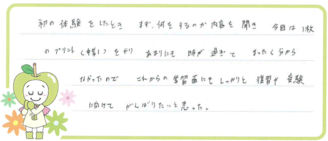 初の体験をしたとき まず、何をするのか内容を聞き 今日は1枚
のプリント(等しい)をやり あまりにも時が過ぎて まったく分から
なかったので これからの学習面にもしっかりと復習や受験
に向けて がんばりたいと思った。